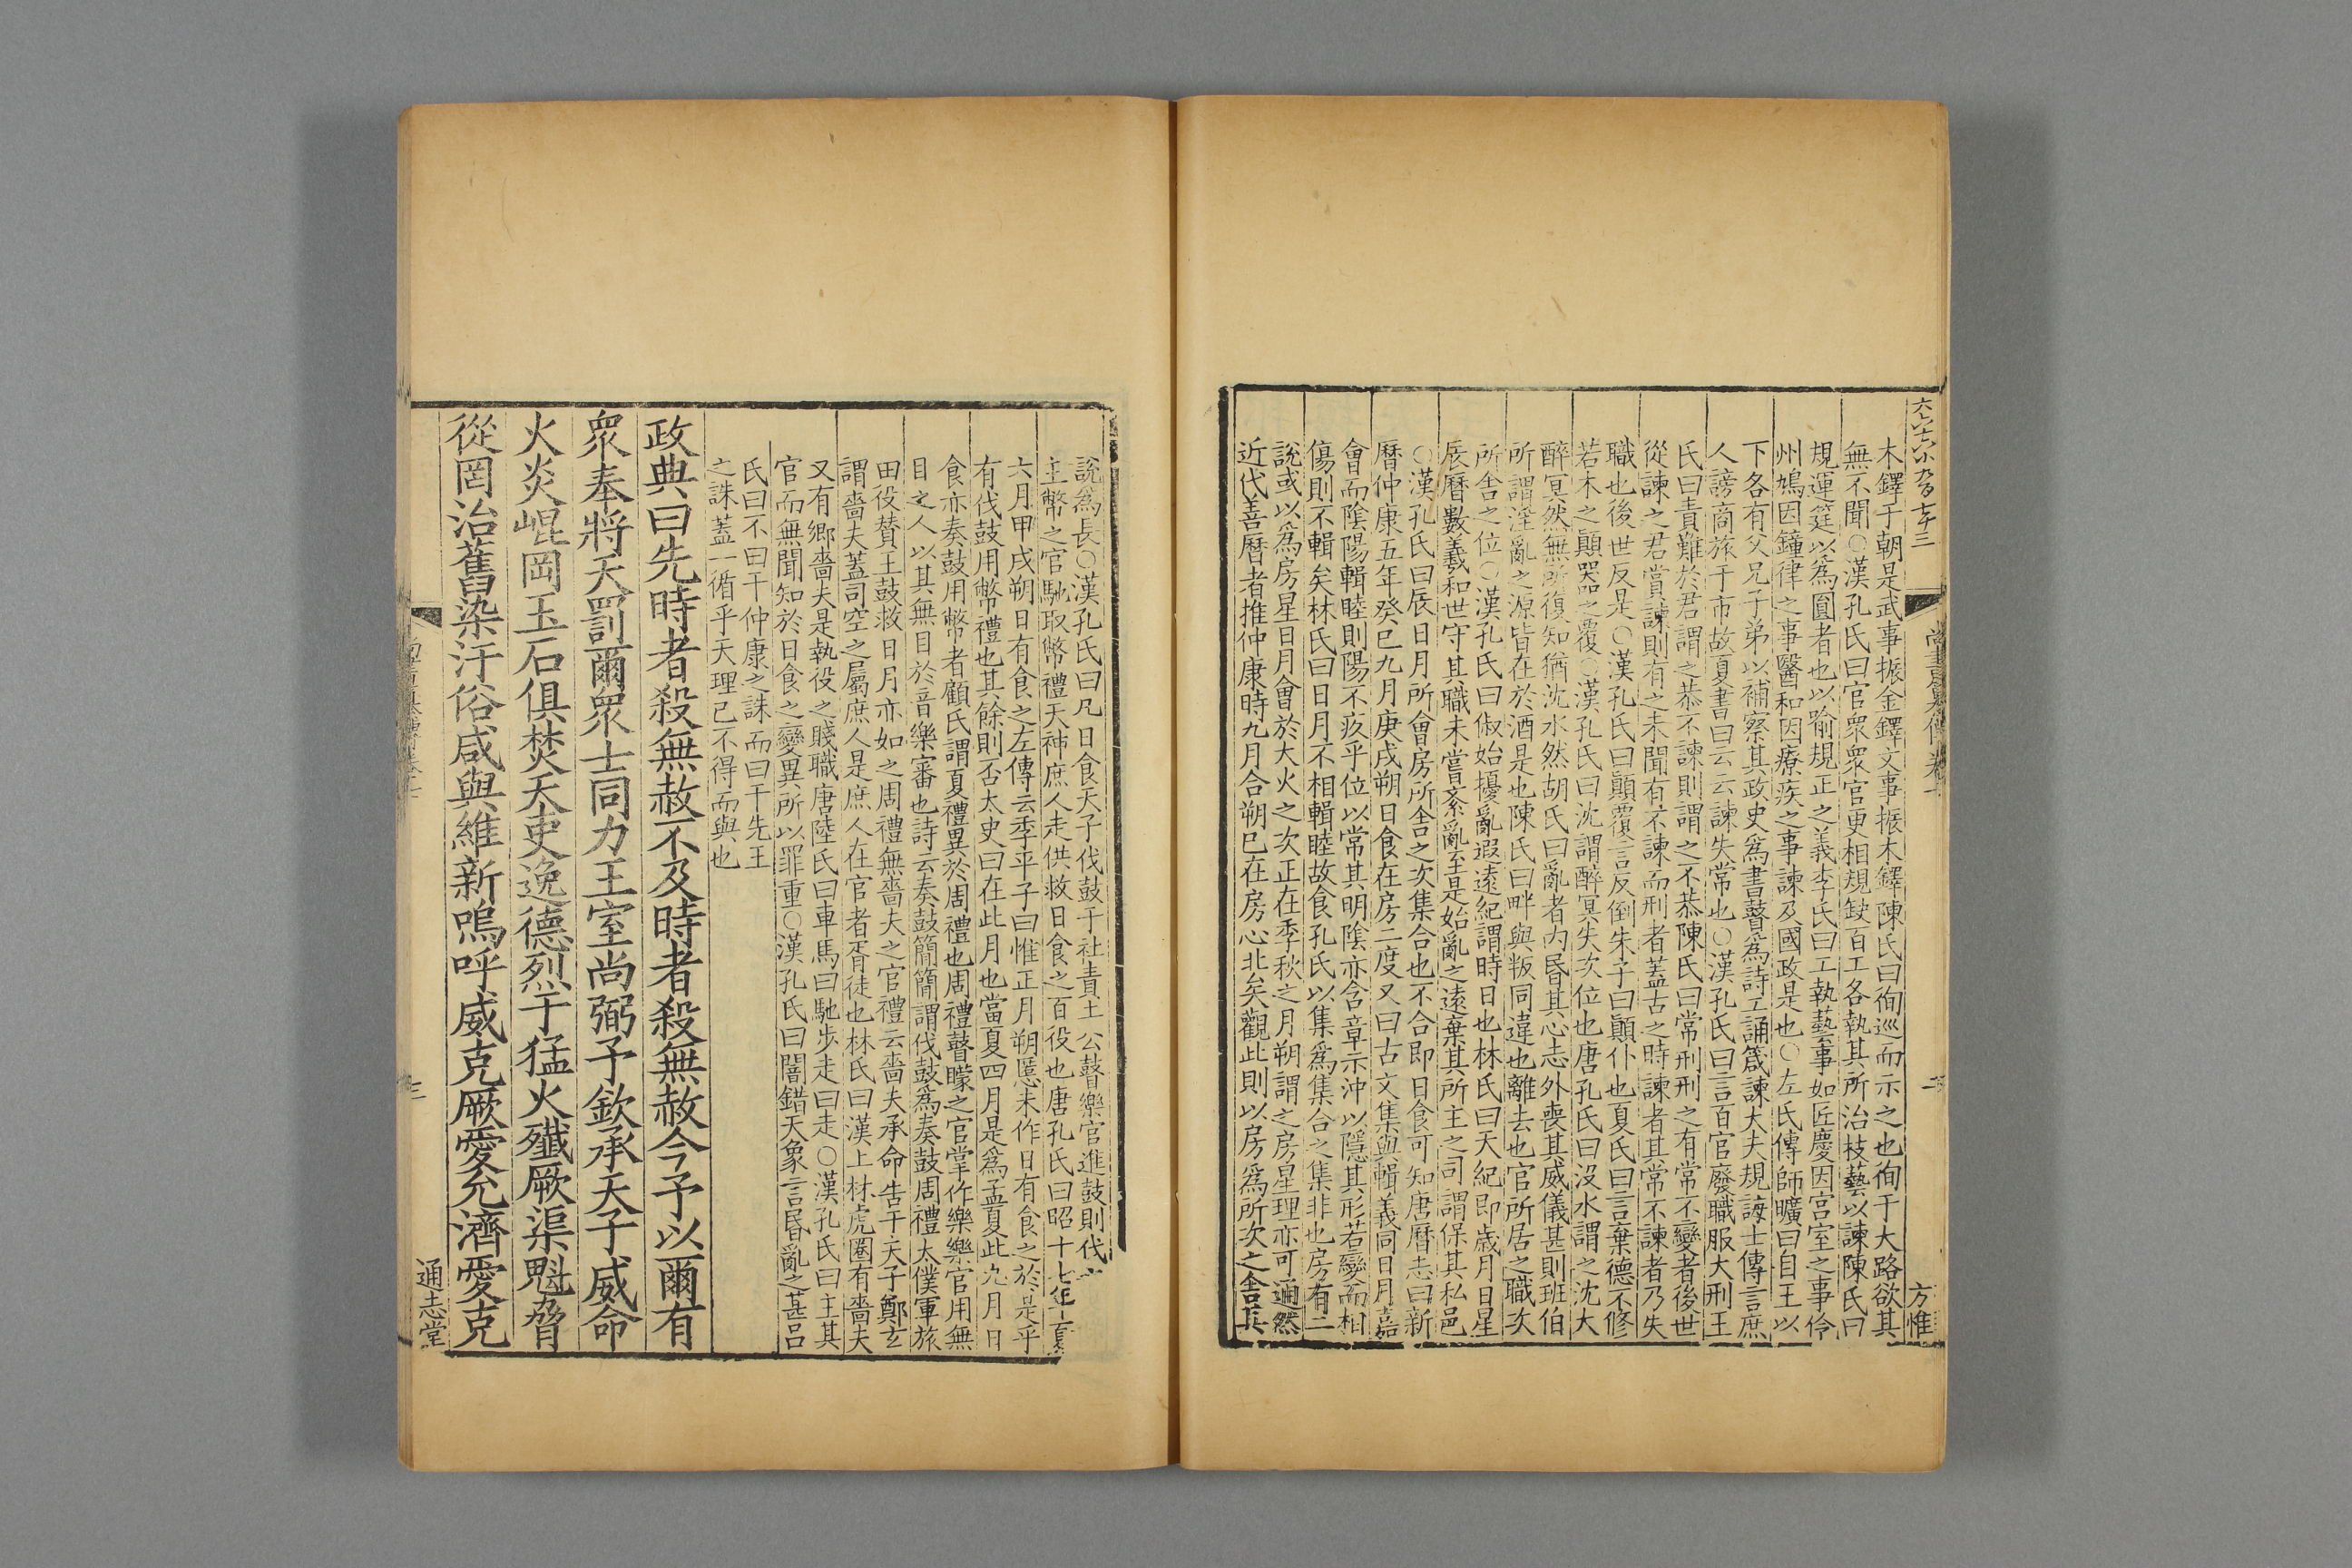 木鐸于朝是武事振金鐸文事振木鐸陳氏曰徇巡而示之也徇于大路欲其
無不聞○漢孔氏曰官衆衆官更相規缺百工各執其所治技藝以諫陳氏曰
規運筳以爲圓者也以喻規正之義李氏曰工執藝事如匠慶因宮室之事伶
州鳩因鐘律之事醫和因療疾之事諫及國政是也○左氏傳師曠曰自王以
下各有父兄子弟以補察其政史爲書瞽爲詩工誦箴諫大夫規誨士傳言庶
人謗商旅于市故夏書曰云云諫失常也○漢孔氏曰言百官廢職服大刑王
氏曰責難於君謂之恭不諫則謂之不恭陳氏曰常刑刑之有常不變者後世
從諫之君賞諫則有之未聞有不諫而刑者蓋古之時諫者其常不諫者乃失
職也後世反是○漢孔氏曰顚覆言反倒朱子曰顚仆也夏氏曰言棄德不修
若木之顚器之覆○漢孔氏曰沈謂醉冥失次位也唐孔氏曰沒水謂之沈大
醉冥然無所復知猶沈水然胡氏曰亂者内昬其心志外喪其威儀甚則班伯
所謂淫亂之源皆在於酒是也陳氏曰畔與叛同違也離去也官所居之職次
所舍之位○漢孔氏曰俶始擾亂遐遠紀謂時日也林氏曰天紀即歲月日星
辰曆數羲和世守其職未嘗紊亂至是始亂之遠棄其所主之司謂保其私邑
○漢孔氏曰辰日月所會房所舍之次集合也不合即日食可知唐曆志曰新
曆仲康五年癸巳九月庚戌朔日食在房二度又曰古文集與輯義同日月嘉
會而陰陽輯睦則陽不疚乎位以常其明陰亦含章示沖以隱其形若變而相
傷則不輯矣林氏曰日月不相輯睦故食孔氏以集爲集合之集非也房有二
說或以爲房星日月會於大火之次正在季秋之月朔謂之房星理亦可通然
近代善曆者推仲康時九月合朔已在房心北矣觀此則以房爲所次之舍其
六百六十六 大九百七十三
尚書 傳卷
方惟
說爲長○漢孔氏曰凡日食天子伐鼓于社責上公瞽樂官進鼓則伐之
主幣之官馳取幣禮天神庶人走供救日食之百役也唐孔氏曰昭十七年夏
六月甲戌朔日有食之左傳云季平子曰惟正月朔慝未作日有食之於是乎
有伐鼓用幣禮也其餘則否太史曰在此月也當夏四月是爲孟夏此九月日
食亦奏鼓用幣者顧氏謂夏禮異於周禮也周禮瞽矇之官掌作樂樂官用無
目之人以其無目於音樂審也詩云奏鼓簡簡謂伐鼓爲奏鼓周禮大僕軍旅
田役贊王鼓救日月亦如之周禮無嗇夫之官禮云嗇夫承命告于天子鄭玄
謂嗇夫蓋司空之屬庶人是庶人在官者胥徒也林氏曰漢上林虎圈有嗇夫
又有鄉嗇夫是執役之賤職唐陸氏曰車馬曰馳步走曰走○漢孔氏曰主其
官而無聞知於日食之變異所以罪重○漢孔氏曰闇錯天象言昬亂之甚呂
氏曰不曰干仲康之誅而曰干先王
之誅蓋一循乎天理己不得而與也
政典曰先時者殺無赦不及時者殺無赦今予以爾有
衆奉將天罰爾衆士同力王室尚弼予欽承天子威命
火炎崐岡玉石俱焚天吏逸德烈于猛火殲厥渠魁脅
從罔治舊染汙俗咸與維新嗚呼威克厥愛允濟愛克
三
通志堂